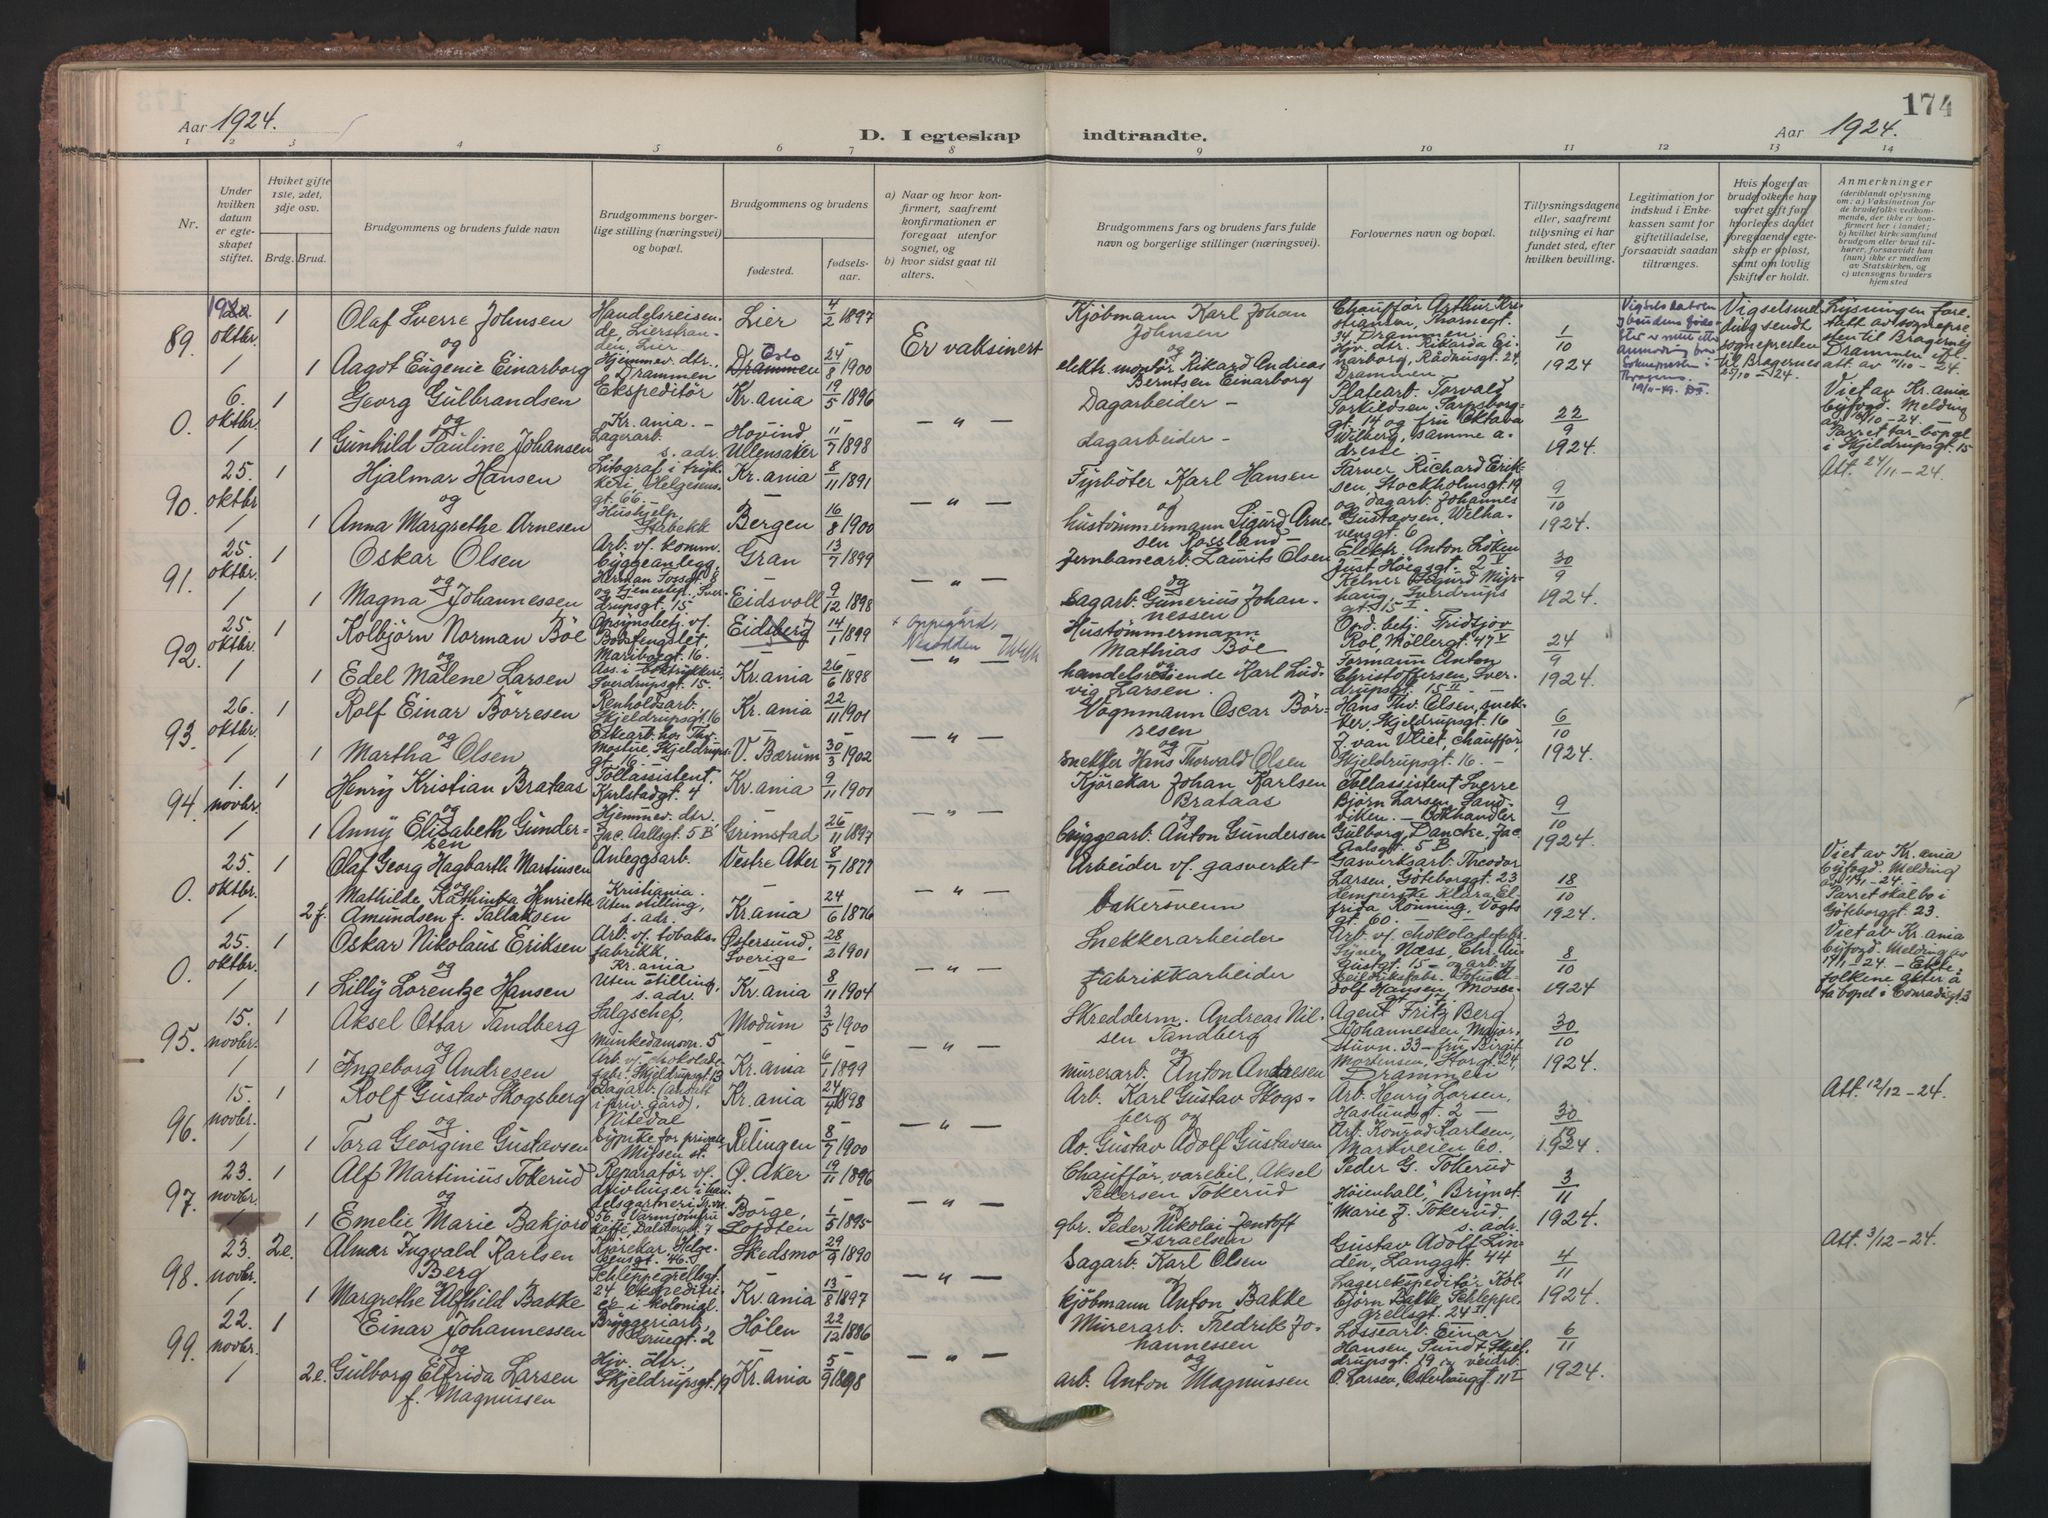 174
Aar 1924.
D. I egteskap indtraadte.
Aar 1924.
1 2 3 4 5 6 7 8 9 10 11 12 13 14
Nr.
Under hvilken datum er egteskapet stiftet.
Hviket gifte 1ste, 2det, 3dje osv.
Brdg. Brud.
Brudgommens og brudens fulde navn
Brudgommens borgerlige stilling (næringsvei) og bopæl.
Brudgommens og brudens
fødested.
fødselsaar.
a) Naar og hvor konfirmert, saafremt konfirmationen er foregaat utenfor sognet, og
b) hvor sidst gaat til alters.
Brudgommens fars og brudens fars fulde navn og borgerlige stillinger (næringsvei).
Forlovernes navn og bopæl.
Tillysningsdagene eller, saafremt tillysning ei har fundet sted, efter hvilken bevilling.
Legitimation for indskud i Enkekassen samt for giftetilladelse, forsaavidt saadan tiltrænges.
Hvis nogen av brudefolkene har været gift før hvorledes da det foregaaende egteskap er opløst, samt om lovlig skifte er holdt.
Anmerkninger
(deriblandt oplysning om: a) Vaksination for de brudefolks vedkommende, der ikke er konfirmert her i landet; b) hvilket kirkesamfund brudgom eller brud tilhører, forsaavidt han (hun) ikke er medlem av Statskirken, og c) utensogns bruders hjemsted
89. oktbr. 1 Olaf Sverre Johnsen Handelsreisende, Lierstranden, Lier Lier 4/2 1897 Er vaksinert Kjöbmann Karl Johan Johnsen Chaufför Arthur Kristiansen, Tromegt. 34 Drammen 1/10 1924
og
1 Aagot Eugenie Einarborg Hjemmev. dtr. Drammen Drammen Oslo 24/8 1900 elektr. montör Rikard Andreas Berntsen Einarborg Hjv. dtr. Rikarda Einarborg, Rådhusgt. 24, Drammen
Vigselsmeldung sendt sognepresten til Bragernes 25/10 – 24.
Lysningen foretatt av sognepresten til Bragernes Drammen ifl. att. av 11/10 – 24.
0. 6. oktbr. 1 Georg Gulbrandsen Ekspeditör Kr.ania. Kr.ania 19/5 1896 — „ — Dagarbeider – Platearb. Torvald Torkildsen, Sarpsborggt. 14 og fru Oktava Wilberg, samme adresse 22/9 1924.
og
1 Gunhild Pauline Johansen Lagerarb. s. adr. Hovind Ullensaker 11/7 1898 dagarbeider –
Viet av Kr.ania byfogd. Melding av 10/10 – 24. Parret tar bopel i Skjeldrupsgt. 15
90. 25. oktbr. 1 Hjalmar Hansen Litograf i trykkeri Helgesensgt. 66. Kr.ania 8/11 1891 — „ — Fyrböter Karl Hansen Farver Richard Eriksen, Stockholmsgt. 19 9/10 1924.
og
1 Anna Margrethe Arnesen Hushjelp, Stabekk Bergen 16/8 1900 hustömmermann Sigurd Arnesen Rossland – og dagarb. Johannes Gustavsen, Welhavensgt. 6
Att. 24/11 – 24.
91. 25. oktbr. 1 Oskar Olsen Arb. v/. komm. byggeanlegg, Herman Fossgt. 8 Gran 13/7 1899 — „ — Jernbanearb. Laurits Olsen Elektr. Anton Löken Just Höegsgt. 2 V 30/9 1924.
og
1 Magna Johannessen og tjenestep. Sverdrupsgt. 15 Eidsvoll 9/12 1898 Sagarb. Gunerius Johannessen Kelner Sigurd Myrhaug, Sverdrupsgt. 15 I
92. 25. oktbr. 1 Kolbjörn Norman Böe Opsynsbetj. v/. Botsfengslet, Mariboegt. 16. Eidsberg 14/1 1899 + Oppegård, Nesodden Hustömmermann Mathias Böe Opd. betj. Fridtjov Rol, Möllergt. 47 V 24/9 1924.
og
1 Edel Malene Larsen Sverdrupsgt. 15. Kr.ania 26/6 1898 — „ — handelsreisende Karl Ludvig Larsen. Formann Anton Christoffersen, Sverdrupsgt. 15 II
93. 26. oktbr. 1 Rolf Einar Börresen Renholdsarb. Skjeldrupsgt. 16 Kr.ania 22/11 1901 — „ — Vognmann Oscar Börresen Hans Thv. Olsen, snekker, Skjeldrupsgt. 16 6/10 1924.
og
1 Martha Olsen Eskearb. hos Thv. Mostue, Skjeldrupsgt. 16 – V. Bærum 30/3 1902 snekker Hans Thorvald Olsen J. van Vliet, chaufför, Skjeldrupsgt. 16. –
94. 1. novbr. 1 Henry Kristian Brataas Tollassistent, Karlstadgt. 4 Kr.ania 9/11 1901 — „ — Kjörekar Johan Karlsen Brataas Tollassistent Sverre Björn Larsen, Sandviken. – 9/10 1924.
og
1 Anny Elisabeth Gundersen Hjemmev. dtr., Jac. Aallsgt. 5 B Grimstad 26/11 1897 byggearb. Anton Gundersen Bokhandler Gulborg Dancke, Jac. Aalsgt. 5 B
0. 25. oktbr. 1 Olaf Georg Hagbarth Martinsen Anleggsarb. Kristiania. Vestre Aker 8/7 1877 — „ — Arbeider v/. gasverket Gasverksarb. Theodor Larsen, Göteborggt. 23 18/10 1924.
og
2 f. Mathilde Kathinka Henriette Amundsen f. Tallaksen Uten stilling, s. adr. Kr.ania 24/6 1876 bakersvenn Klara Elfrida Rönning, Vogtsgt. 60.
Viet av Kr.ania byfogd. Melding av 17/11 – 24. – Parret skal bo i Göteborggt. 23.
0. 25. oktbr. 1 Oskar Nikolaus Eriksen Arb. v/. tobaksfabrikk, Kr.ania Östersund, Sverige 28/2 1901 — „ — Snekkerarbeider Arb. v/. chokoladefabr. Signy Næss, Chr. Augustgt. 15 – 8/10 1924
og
1 Lilly Lorentze Hansen Uten stilling, s. adr. Kr.ania 8/11 1904 fabrikkarbeider
Viet av Kr.ania byfogd. Melding av 17/11 – 24 – Ektefolkene akter å ta bopel i Conradisgt. 3
95. 15. novbr. 1 Aksel Ottar Tandberg Salgschef, Munkedamsvn. 5 Modum 3/5 1900 — „ — Skredderm. Andreas Nilsen Tandberg Agent Fritz Berg Johannessen, Majorstuvn. 33 – 30/10 1924.
og
1 Ingeborg Andresen Arb. v/. chokoladefabr., Skjeldrupsgt. 13 Kr.ania 6/1 1899 murerarb. Anton Andresen fru Birgit Mortensen, Storgt. 24, Drammen
96. 15. novbr. 1 Rolf Gustav Skogsberg Dagarb. (ansatt i priv. gård), Nitedal Kr.ania 24/4 1898 — „ — Arb. Karl Gustav Skogsberg og Arb. Henry Larsen, Haslundsgt. 2 – 30/10 1924.
og
1 Tora Georgine Gustavsen Sypike for private Nitsen st. Relingen 8/7 1900 do. Gustav Adolf Gustavsen Arb. Konrad Karlsen, Markveien 60.
Att. 12/12 – 24.
97. 23. novbr. 1 Alf Martinius Tokerud Reparatör v/. drivhuser i handelsgartneri Ö. Aker 19/11 1896 — „ — Chaufför, varebil, Aksel Pedersen Tokerud Peder G. Tokerud „Höienhall", Brynet. 3/11 1924.
og
1 Emelie Marie Bakjord Börge, Lofoten 1/5 1895 gbr. Peder Nikolai Jentoft Israelsen Marie J. Tokerud s. adr.
98. 23. novbr. 2 e. Almar Ingvald Karlsen Berg Kjörekar, Helgesensgt. 46. Skedsmo 29/9 1890 — „ — Sagarb. Karl Olsen Gustav Adolf Linden, Langgt. 44 4/11 1924.
og
1 Margrethe Alfhild Bakke Schleppegrellsgt. 24 Ekspeditrise i kolonial. Kr.ania 13/8 1897 kjöbmann Anton Bakke Lagerekspeditör Kolbjörn Bakke Schleppegrellsgt. 24 II
Att. 3/12 – 24.
99. 22. novbr. 1 Einar Johannessen Bryggeriarb., Gruegt. 2 Hölen 22/12 1886 — „ — Murerarb. Fredrik Johannessen Lossearb. Einar Hansen Sundt, Skjeldrupsgt. 19 6/11 1924.
og
2 e. Gulborg Elfrida Larsen f. Magnussen Hjv. dtr., Skjeldrupsgt. 19 Kr.ania 5/9 1898 arb. Anton Magnussen veidrb. O. Larsen, Osterhausgt. 11 I